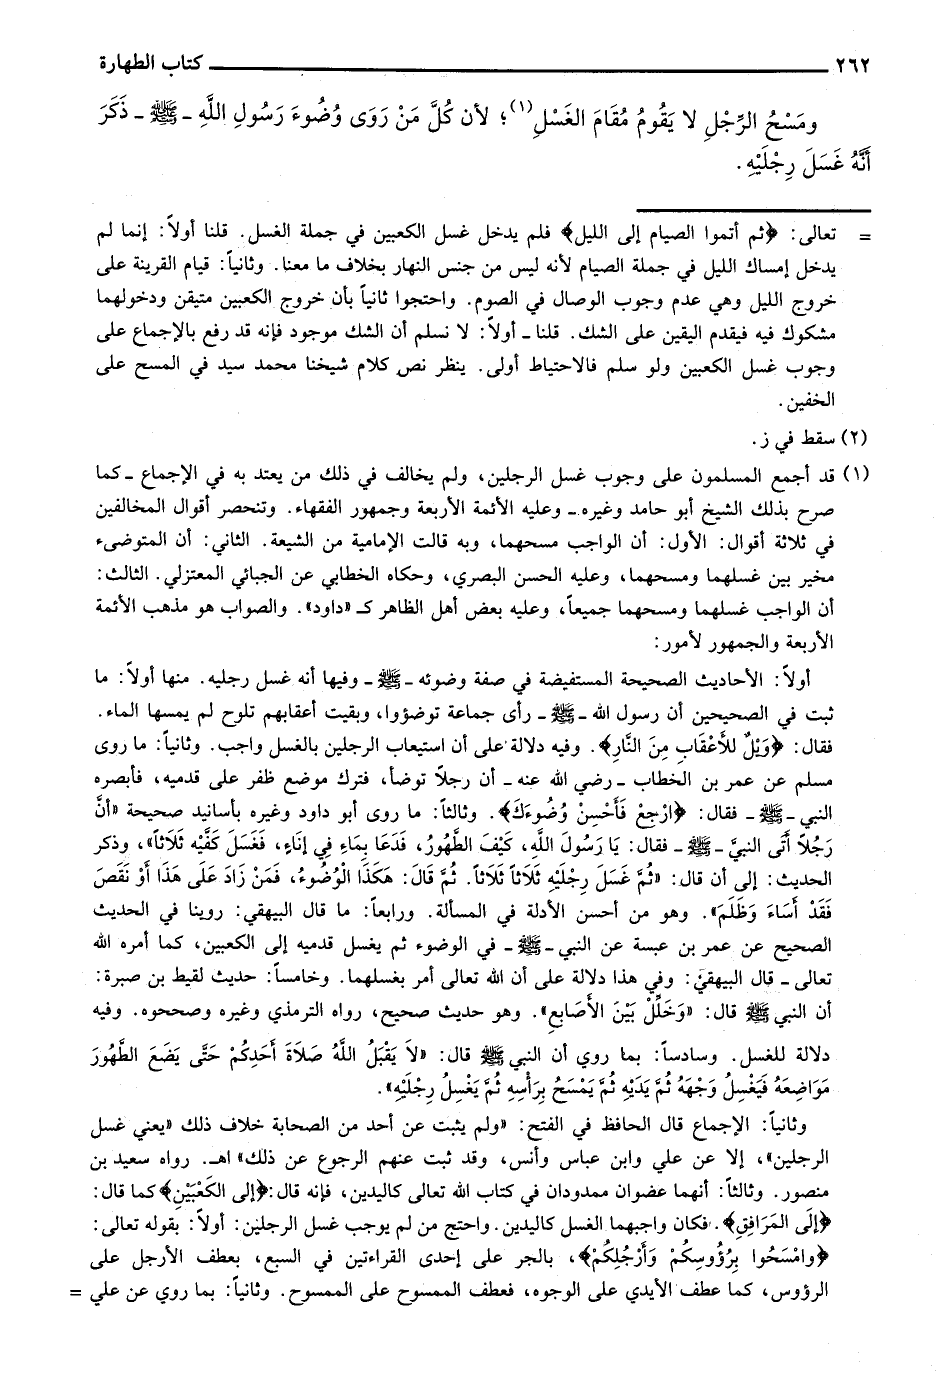 ٢٦٢ كتاب الطهارة
ومَسْحُ الرِّجْلِ لا يَقُومُ مُقَامَ الغَسْلِ(١)؛ لأن كُلَّ مَنْ رَوَى وُضُوءَ رَسُولِ اللَّهِ ـ ﷺ ـ ذَكَرَ
أَنَّهُ غَسَلَ رِجْلَيْهِ.
= تعالى: ﴿ثم أتموا الصيام إلى الليل﴾ فلم يدخل غسل الكعبين في جملة الغسل. قلنا أولاً: إنما لم
يدخل إمساك الليل في جملة الصيام لأنه ليس من جنس النهار بخلاف ما معنا. وثانياً: قيام القرينة على
خروج الليل وهي عدم وجوب الوصال في الصوم. واحتجوا ثانياً بأن خروج الكعبين متيقن ودخولهما
مشكوك فيه فيقدم اليقين على الشك. قلنا ـ أولاً: لا نسلم أن الشك موجود فإنه قد رفع بالإجماع على
وجوب غسل الكعبين ولو سلم فالاحتياط أولى. ينظر نص كلام شيخنا محمد سيد في المسح على
الخفين.
(٢) سقط في ز.
(١) قد أجمع المسلمون على وجوب غسل الرجلين، ولم يخالف في ذلك من يعتد به في الإجماع ـ كما
صرح بذلك الشيخ أبو حامد وغيره ـ وعليه الأئمة الأربعة وجمهور الفقهاء. وتنحصر أقوال المخالفين
في ثلاثة أقوال: الأول: أن الواجب مسحهما، وبه قالت الإمامية من الشيعة. الثاني: أن المتوضىء
مخير بين غسلهما ومسحهما، وعليه الحسن البصري، وحكاه الخطابي عن الجبائي المعتزلي. الثالث:
أن الواجب غسلهما ومسحهما جميعاً، وعليه بعض أهل الظاهر كـ «داود». والصواب هو مذهب الأئمة
الأربعة والجمهور لأمور:
أولاً: الأحاديث الصحيحة المستفيضة في صفة وضوئه ـ ﷺ ـ وفيها أنه غسل رجليه. منها أولاً: ما
ثبت في الصحيحين أن رسول الله ـ ﷺ ـ رأى جماعة توضؤوا، وبقيت أعقابهم تلوح لم يمسها الماء.
فقال: ﴿وَيْلٌ للأَعْقَابِ مِنَ النَّارِ﴾. وفيه دلالة على أن استيعاب الرجلين بالغسل واجب. وثانياً: ما روى
مسلم عن عمر بن الخطاب ـ رضي الله عنه ـ أن رجلاً توضأ، فترك موضع ظفر على قدميه، فأبصره
النبي ـ ﷺ ـ فقال: ﴿ارْجِعْ فَأَحْسِنْ وُضُوءَكَ﴾. وثالثاً: ما روى أبو داود وغيره بأسانيد صحيحة «أَنَّ
رَجُلاً أَتَى النبيَّ ـ ﷺ ـ فقال: يَا رَسُولَ اللَّهِ، كَيْفَ الطَّهُورُ، فَدَعَا بِمَاءٍ فِي إِنَاءٍ، فَغَسَلَ كَفَّيْهِ ثَلاَثاً»، وذكر
الحديث: إلى أن قال: «ثُمَّ غَسَلَ رِجْلَيْهِ ثَلاَثاً ثَلاَثاً. ثُمَّ قَالَ: هَكَذَا الْوُضُوءُ، فَمَنْ زَادَ عَلَى هَذَا أَوْ نَقَصَ
فَقَدْ أَسَاءَ وَظَلَمَ». وهو من أحسن الأدلة في المسألة. ورابعاً: ما قال البيهقي: روينا في الحديث
الصحيح عن عمر بن عبسة عن النبي ـ ﷺ ـ في الوضوء ثم يغسل قدميه إلى الكعبين، كما أمره الله
تعالى ـ قال البيهقي: وفي هذا دلالة على أن الله تعالى أمر بغسلهما. وخامساً: حديث لقيط بن صبرة:
أن النبي ﷺ قال: «وَخَلِّلْ بَيْنَ الأَصَابِعِ». وهو حديث صحيح، رواه الترمذي وغيره وصححوه. وفيه
دلالة للغسل. وسادساً: بما روي أن النبي ﷺ قال: «لاَ يَقْبَلُ اللَّهُ صَلاَةَ أَحَدِكُمْ حَتَّى يَضَعَ الطَّهُورَ
مَوَاضِعَهُ فَيَغْسِلُ وَجْهَهُ ثُمَّ يَدَيْهِ ثُمَّ يَمْسَحُ بِرَأْسِهِ ثُمَّ يَغْسِلُ رِجْلَيْهِ».
وثانياً: الإجماع قال الحافظ في الفتح: «ولم يثبت عن أحد من الصحابة خلاف ذلك «يعني غسل
الرجلين»، إلا عن علي وابن عباس وأنس، وقد ثبت عنهم الرجوع عن ذلك» اهـ. رواه سعيد بن
منصور. وثالثاً: أنهما عضوان ممدودان في كتاب الله تعالى كاليدين، فإنه قال: ﴿إلى الكَعْبَيْنِ﴾ كما قال:
﴿إلَى المَرَافِقِ﴾. فكان واجبهما الغسل كاليدين. واحتج من لم يوجب غسل الرجلين: أولاً: بقوله تعالى:
﴿وامْسَحُوا بِرُؤُوسِكُمْ وَأَرْجُلِكُمْ﴾، بالجر على إحدى القراءتين في السبع، بعطف الأرجل على
الرؤوس، كما عطف الأيدي على الوجوه، فعطف الممسوح على الممسوح. وثانياً: بما روي عن علي =